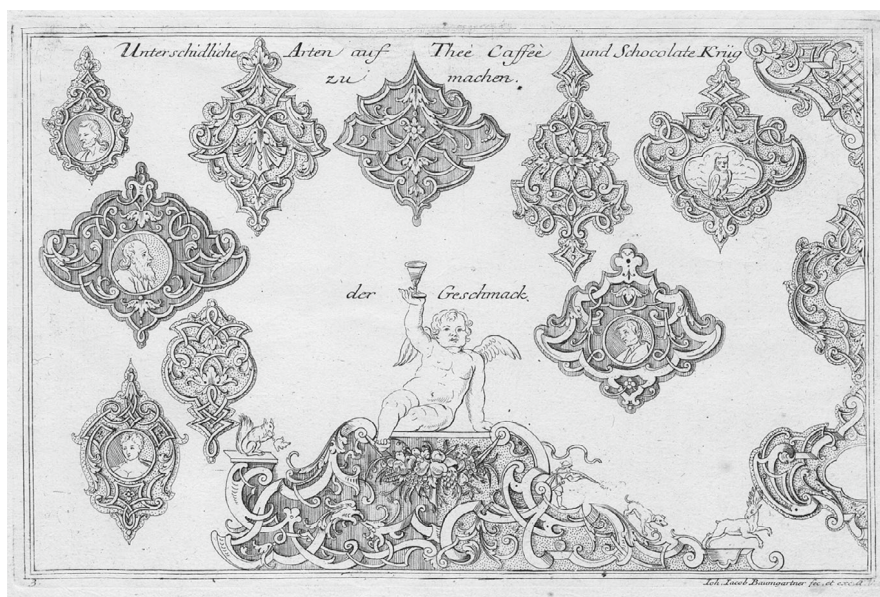 Unterschidliche Arten auf Theè Caffeè und Schocolate Krüg
zu machen.
der Geschmack.
3
Joh. Jacob Baumgartner fec. et exc. A.V.